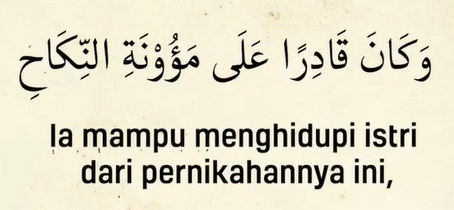 وَكَانَ قَادِرًا عَلَى مَؤُوْنَةِ النِّكَاحِ
Ia mampu menghidupi istri
dari pernikahannya ini,